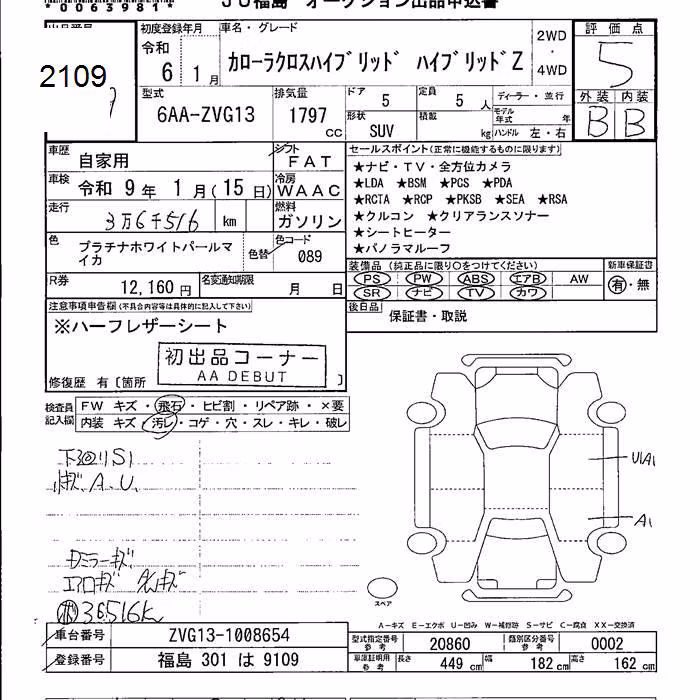 *0063981*
JU福島 オークション出品申込書
出品番号
2109
初度登録年月
令和
6 1月
車名・グレード
カローラクロスハイブリッド ハイブリッドZ
2WD
・
4WD
評価点
5
外装 内装
B B
型式
6AA-ZVG13
排気量
1797
cc
ドア
5
定員
5 人
形状
SUV
積載
kg
ディーラー・並行
モデル年式 年
ハンドル 左・右
車歴
自家用
シフト
FAT
車検
令和 9年 1月(15日)
冷房
WAAC
走行
3万6千516 km
燃料
ガソリン
色
プラチナホワイトパールマイカ
色替
色コード
089
R券
12,160円
名変通知期限
月 日
セールスポイント(正常に機能するものに限ります)
★ナビ・TV・全方位カメラ
★LDA ★BSM ★PCS ★PDA
★RCTA ★RCP ★PKSB ★SEA ★RSA
★クルコン ★クリアランスソナー
★シートヒーター
★パノラマルーフ
装備品(純正品に限り○をつけてください)
PS PW ABS エアB AW
SR ナビ TV カワ
新車保証書
有・無
後日品
保証書・取説
注意事項申告欄(不具合内容等は具体的に記入して下さい)
※ハーフレザーシート
初出品コーナー
AA DEBUT
修復歴 有〔箇所 〕
検査員記入欄
FW キズ・飛石・ヒビ割・リペア跡・×要
内装 キズ・汚レ・コゲ・穴・スレ・キレ・破レ
下回リS1
A.U.
ミラーキズ
エアロキズ
36516k
U1A1
A1
スペア
A－キズ E－エクボ U－凹み W－補修跡 S－サビ C－腐食 XX－交換済
車台番号
ZVG13-1008654
登録番号
福島 301 は 9109
型式指定番号
参考
20860
類別区分番号
参考
0002
車庫証明用
参考
長さ 449 cm 幅 182 cm 高さ 162 cm